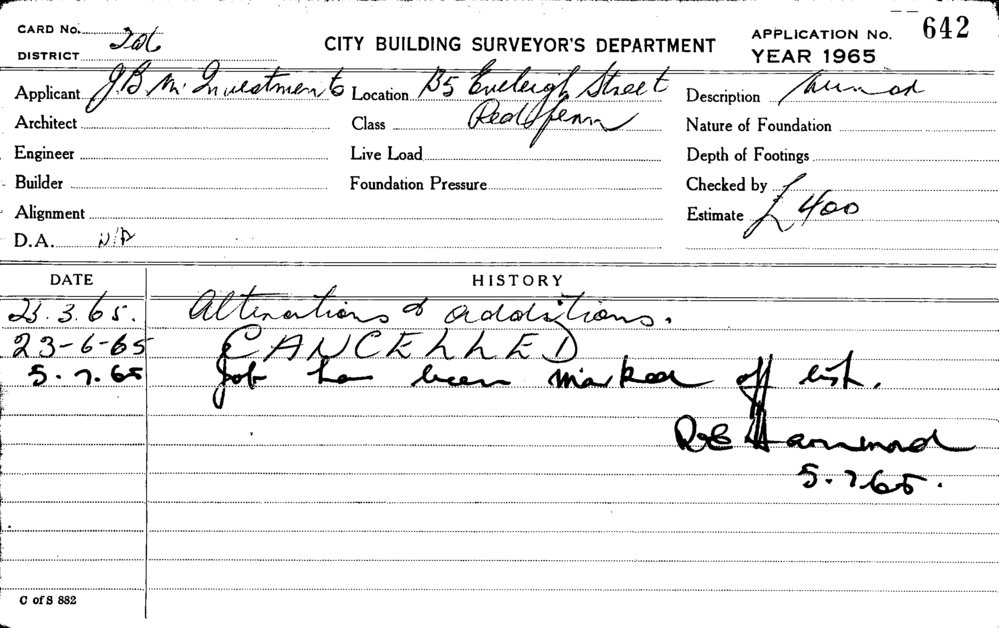 CARD No.
DISTRICT
CITY BUILDING SURVEYOR'S DEPARTMENT
APPLICATION No. 642
YEAR 1965
Applicant J B M. Investments
Location 135 Eveleigh Street
Redfern
Description
Architect
Class
Nature of Foundation
Engineer
Live Load
Depth of Footings
Builder
Foundation Pressure
Checked by
Alignment
Estimate £400
D.A. N/A
DATE HISTORY
3.65. Alterations & additions.
23-6-65 CANCELLED
5.7.65 Job has been marked off list.
Hammond
5.7.65.
C of S 882